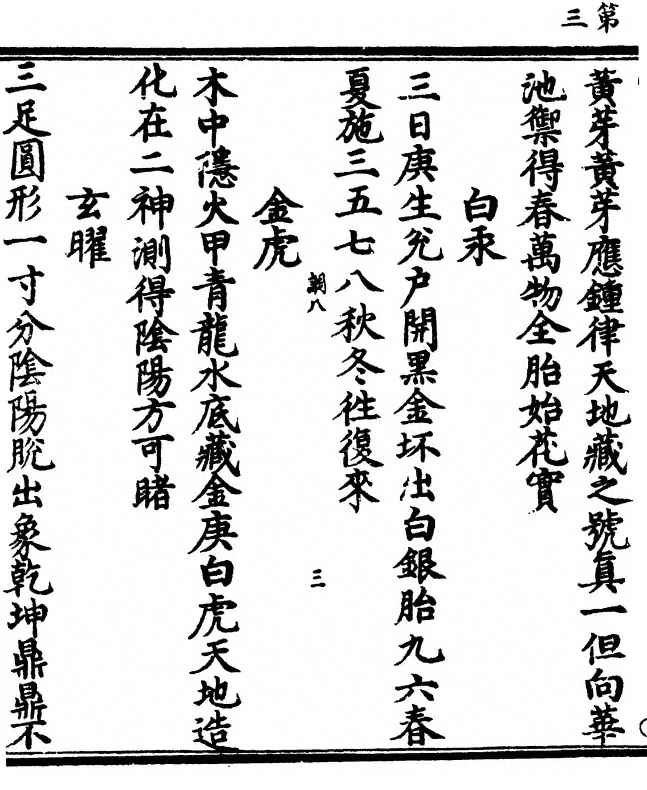 第三
黃芽黃芽應鍾律天地藏之號眞一但向華
池禦得春萬物全胎始花實
白汞
三日庚生兊户開黑金坏出白銀胎九六春
夏施三五七八秋冬徃復來
朝八
三
金虎
木中隱火甲青龍水底藏金庚白虎天地造
化在二神測得陰陽方可睹
玄曜
三足圓形一寸分陰陽脫出象乾坤鼎鼎不